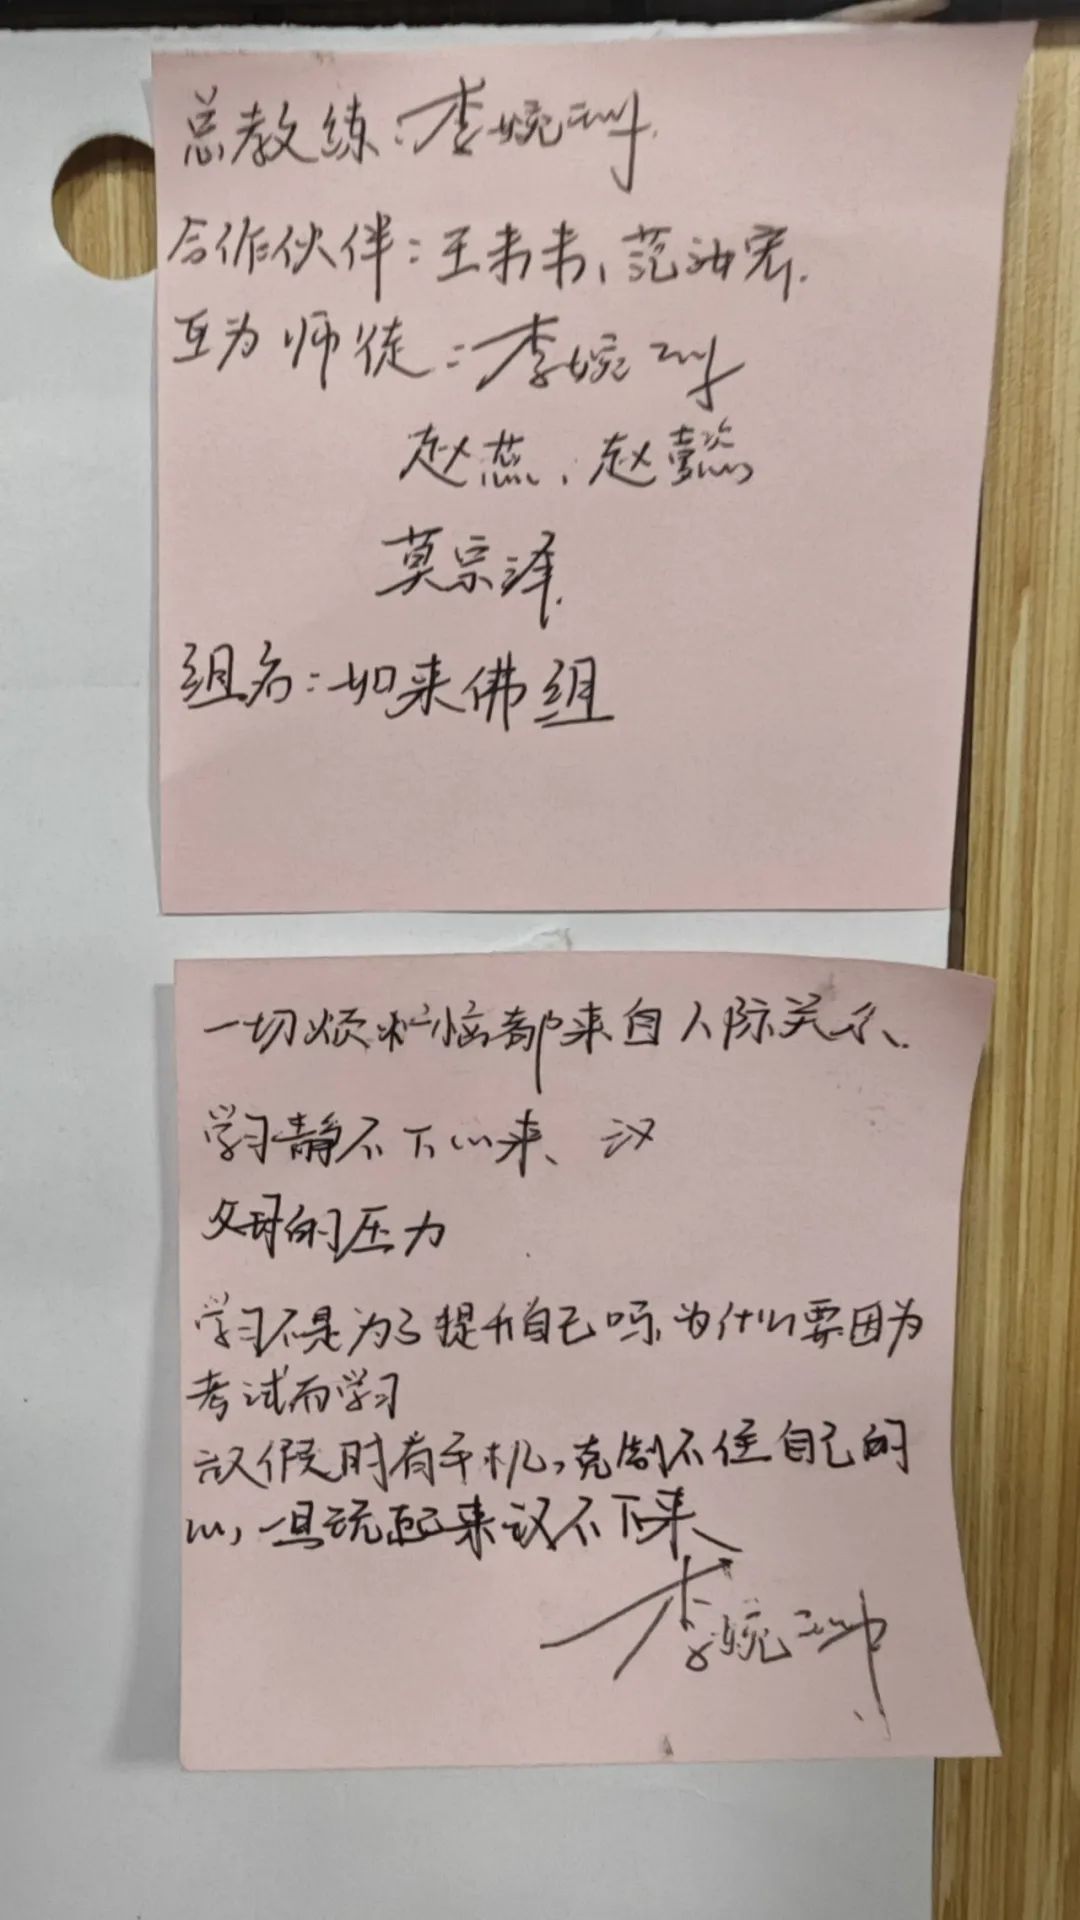 总教练：李婉
合作伙伴：王韦韦、范汝宏.
互为师徒：李婉
赵蕊、赵懿
莫宗泽.
组名：如来佛组
一切烦恼都来自人际关系、
学习静不下心来、
父母的压力
学习不是为了提升自己吗，为什么要因为
考试而学习
放假时有手机，克制不住自己的
心，一旦玩起来 不下来、
李婉